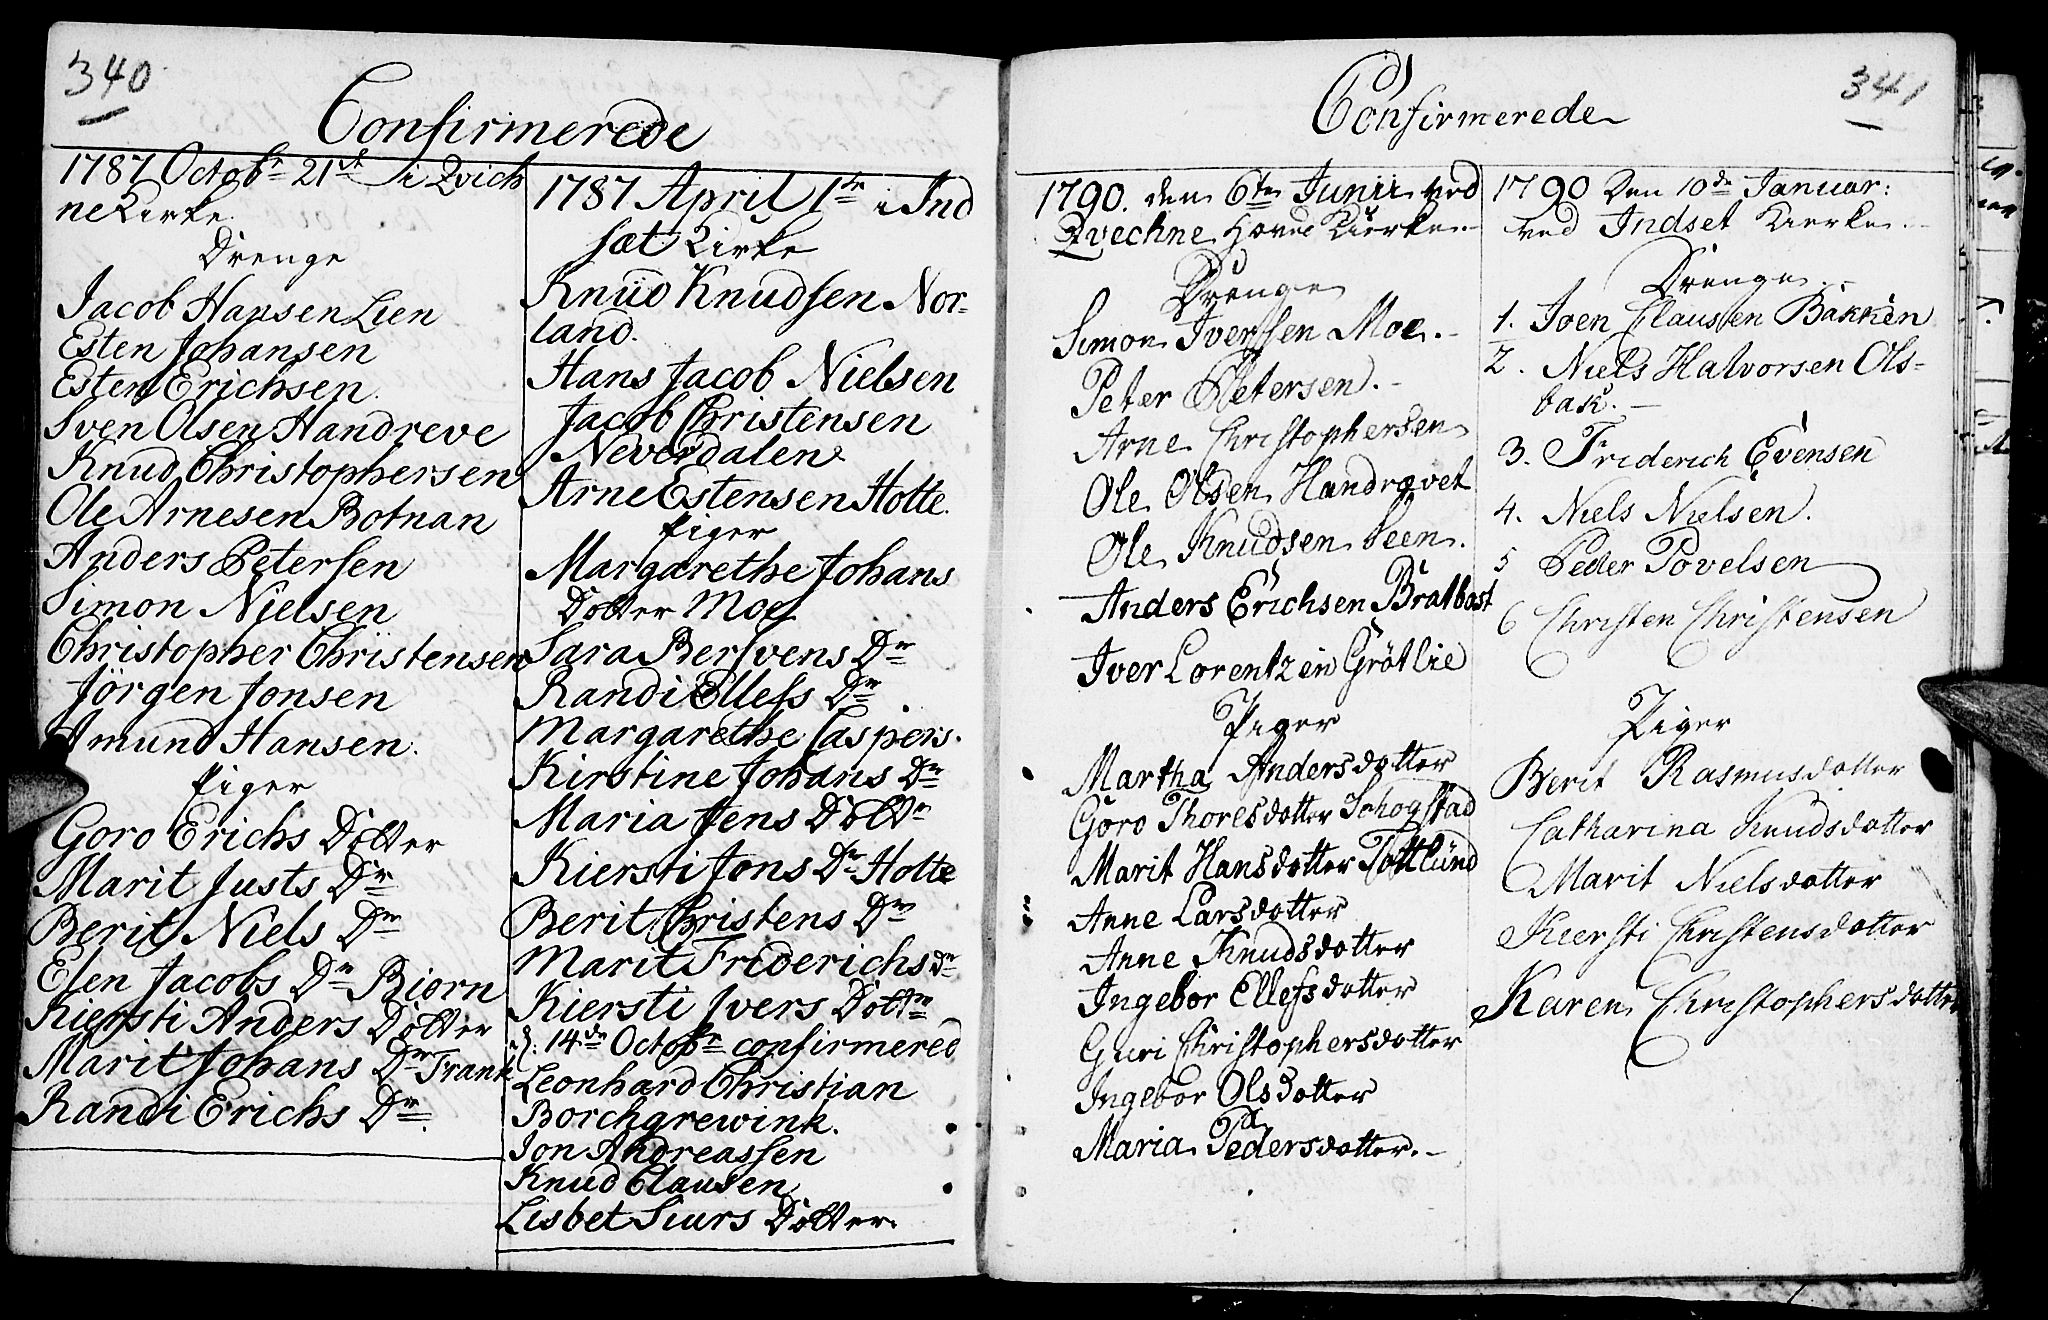 340
Confirmerede
1787 Octobr 21st i Qvich
ne Kirke
Drenge
Jacob Hansen Lien
Esten Johansen
Esten Erichsen.
Sven Olsen Handreve
Knud Christophersen
Ole Arnesen Botnan
Anders Petersen
Simon Nielsen
Christopher Christensen
Jörgen Jonsen
Amund Hansen.
Piger
Goro Erichs Dotter
Marit Justs Dr
Berit Niels Dr
Elen Jacobs Dr Biorn
Kiersti Anders Dotter
Marit Johans Dr Trank
Randi Erichs Dr.
1787 April 1te i Ind
sæt Kirke
Knud Knudsen Nor-
land.
Hans Jacob Nielsen
Jacob Christensen
Neverdalen
Arne Estensen Holte.
Piger
Margarethe Johans
Dotter Moe
Sara Bersvens Dr
Randi Ellefs Dr.
Margarethe Caspers.
Kirstine Johans Dr
Maria Jens Dottr
Kiersti Jons Dr Holte
Berit Christens Dr
Marit Friderichs Dr
Kiersti Ivers Dottr
d. 14de Octobr confirmered
Leonhard Christian
Borchgrewink.
Jon Andreassen
Knud Clausen
Lisbet Siurs Dotter.
341
Confirmerede
1790. den 6te Junii ved
Qvechne Hoved Kierke.
Drenge
Simon Iverssen Moe.-
Peter Petersen.-
Arne Christophersen
Ole Olsen Handrøvet
Ole Knudsen Seen.
Anders Erichsen Bratbast
Iver Lorentzein Grötlie
Piger
Martha Andersdotter
Goro Thoresdotter Schogstad
Marit Hansdotter Tottlund
Anne Larsdotter
Anne Knudsdotter
Ingebor Ellefsdotter
Guri Christophersdotter
Ingebor Olsdotter
Maria Pedersdotter.-
1790 Den 10de Januar:
ved Indset Kierke.-
Drenge
1. Joen Claussen Bakken
2. Niels Halvorsen Ols-
bak.-
3. Friderich Evensen
4. Niels Nielsen.
5 Peder Povelsen
6 Christen Christensen
Piger
Berit Rasmusdotter
Catharina Knudsdotter
Marit Nielsdotter
Kiersti Christensdotter
Karen Christophersdotter